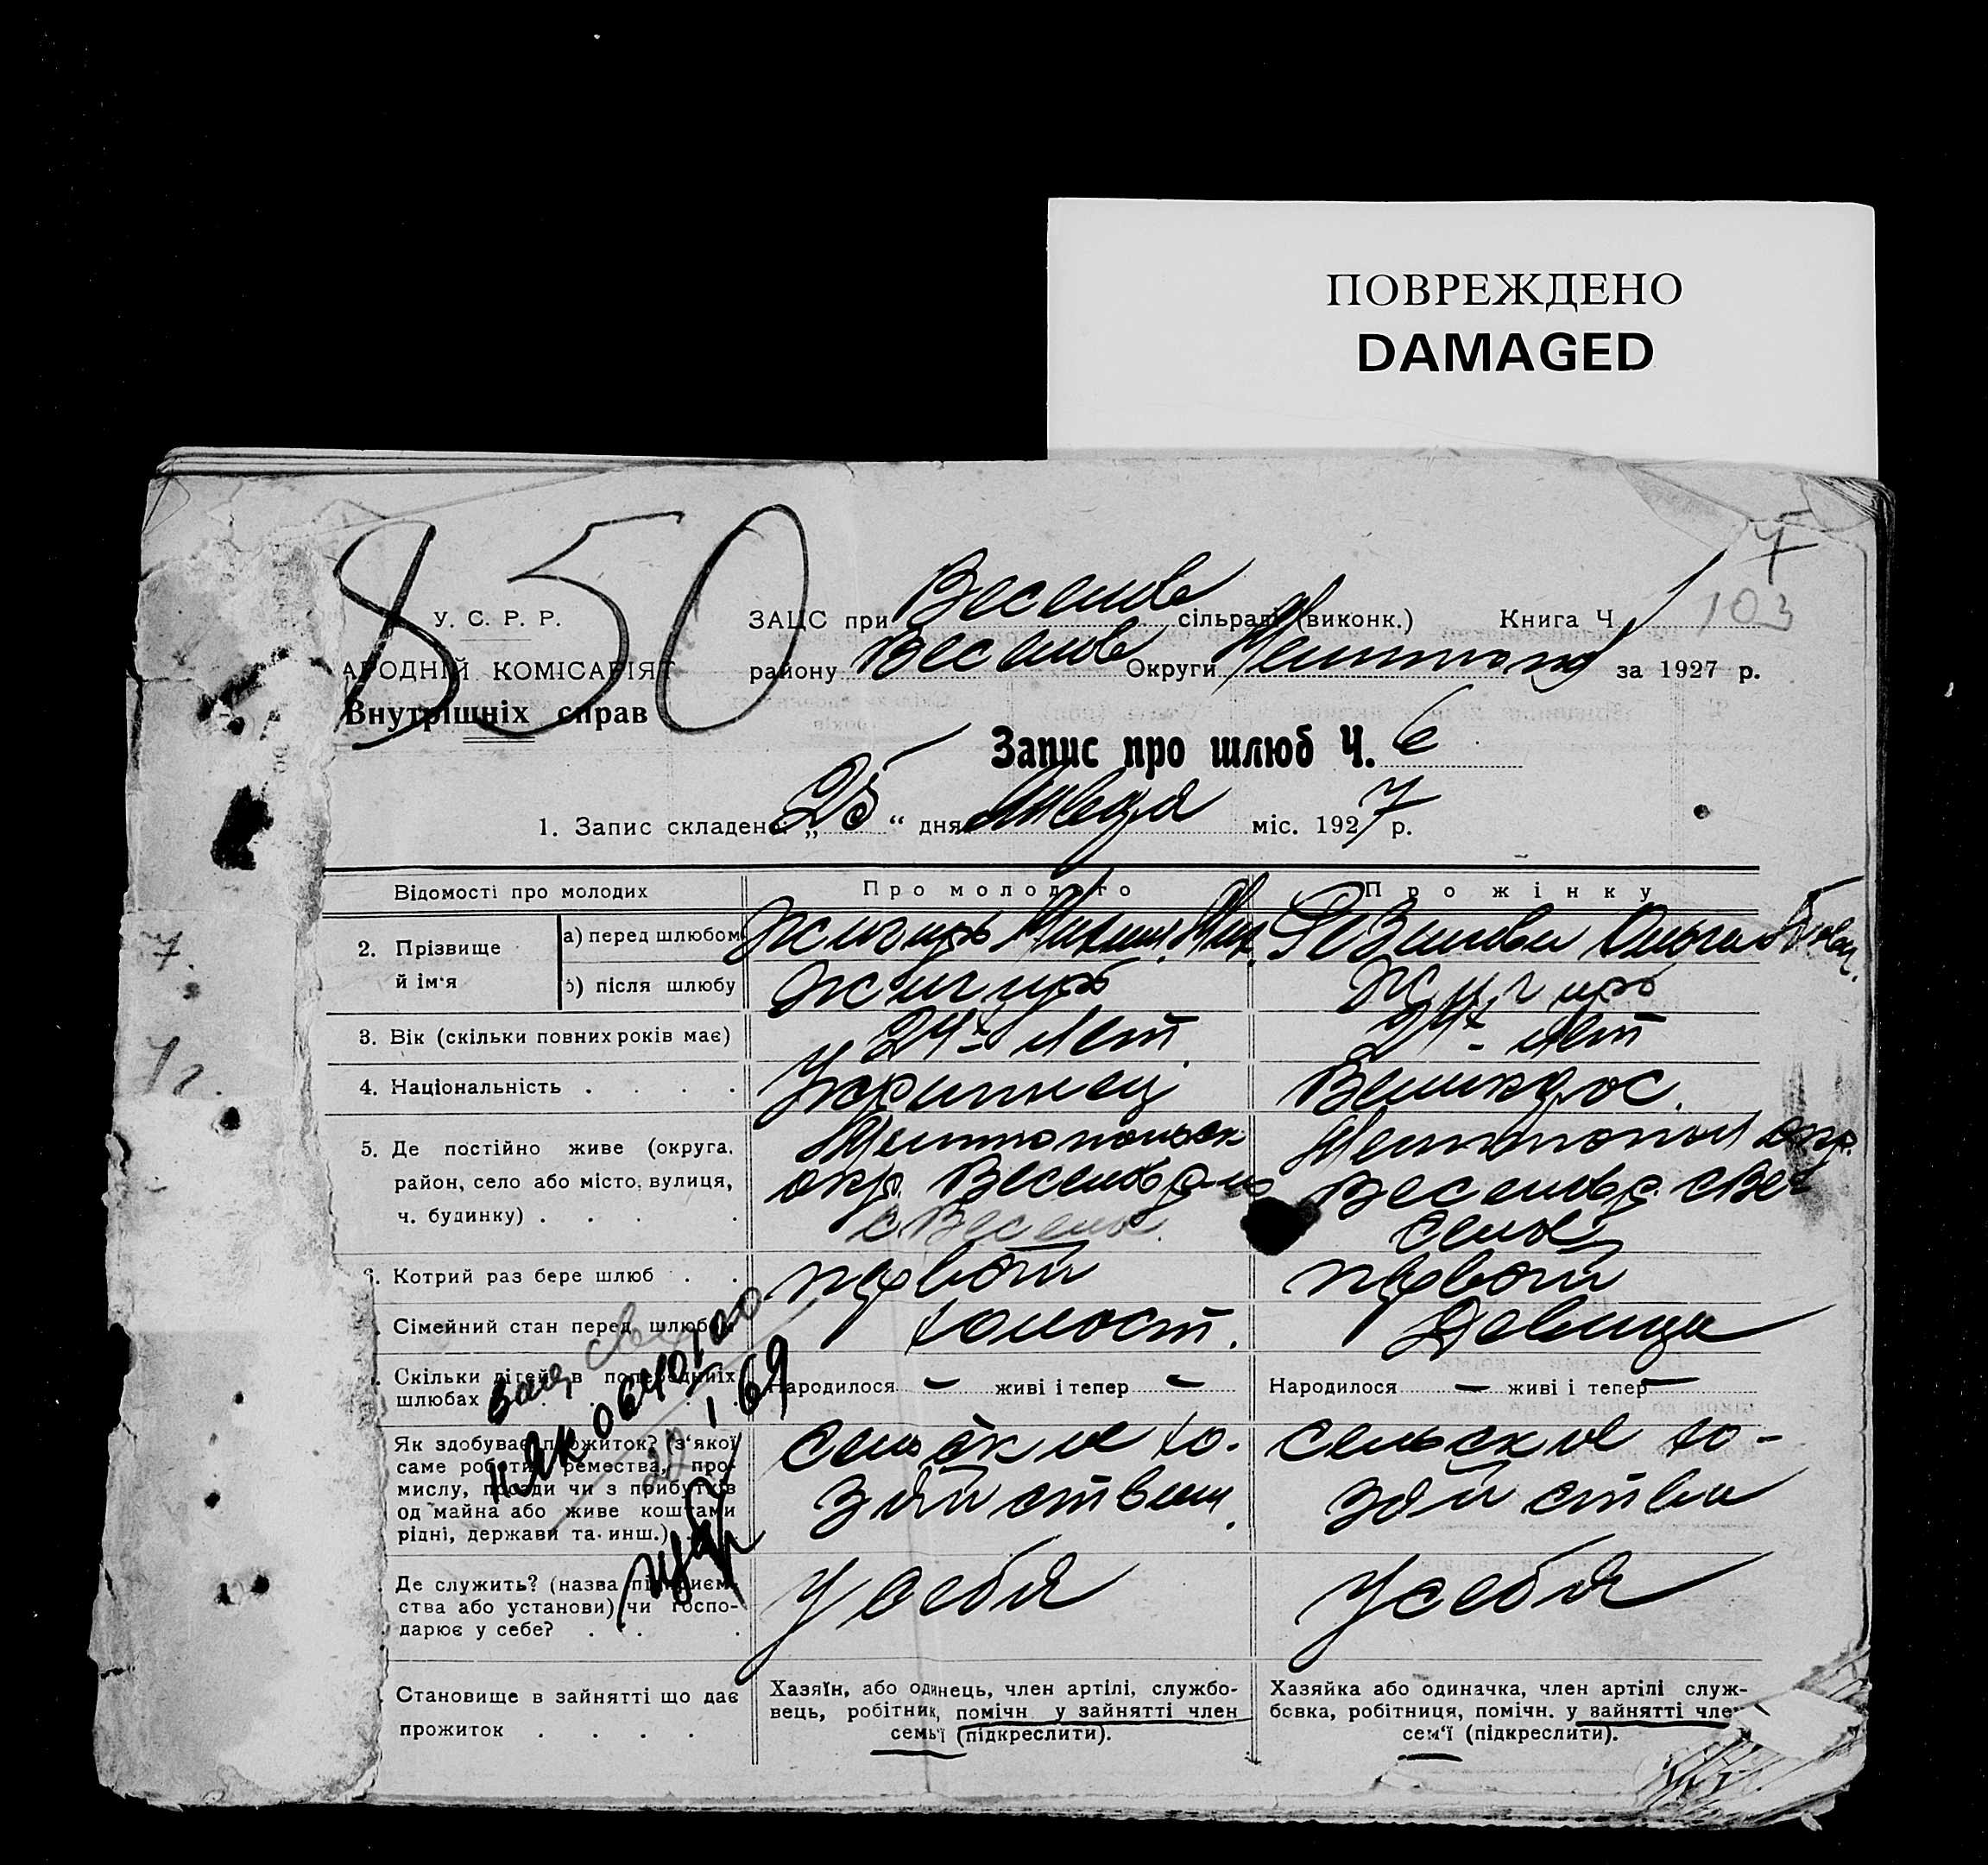 ПОВРЕЖДЕНО
DAMAGED
850
7
103
У. С. Р. Р.
АРОДНІЙ КОМІСАРІЯТ
Внутрішніх справ
ЗАЦС при Веселов сільраді (виконк.) Книга Ч
району Веселов Округи за 1927 р.
Запис про шлюб Ч. 6
1. Запис складено: „25“ дня Января міс. 1927 р.
Відомості про молодих Про молодого Про жінку
2. Прізвище й ім'я
а) перед шлюбом Жигирь Михаил Мих. Ольга
б) після шлюбу Жигирь Жигирь
3. Вік (скільки повних років має) 24 лет 24 лет
4. Національність Украинец Великорос.
5. Де постійно живе (округа, район, село або місто, вулиця, ч. будинку)
Мелитопольск окр. Веселов р-на с. Весел
Мелитопол окр. Веселов р. с Весёлое
6. Котрий раз бере шлюб первой первой
Сімейний стан перед шлюбом холост. Девица
Скільки дітей в попередніх шлюбах Народилося — живі і тепер — Народилося — живі і тепер —
Як здобуває прожиток? (з'якої
саме роботи, ремества, про-
мислу, посади чи з прибутків
од майна або живе коштами
рідні, держави та инш.)
сельское хо-
зяйство
сельское хо-
зяйство
Де служить? (назва підприєм-
ства або установи) чи госпо-
дарює у себе?
у себя у себя
Становище в зайнятті що дає
прожиток
Хазяїн, або одинець, член артілі, службо-
вець, робітник, помічн. у зайнятті член
семьї (підкреслити).
Хазяйка або одиначка, член артілі служ-
бовка, робітниця, помічн. у зайнятті чле
сем'ї (підкреслити).
7.
7г.
69